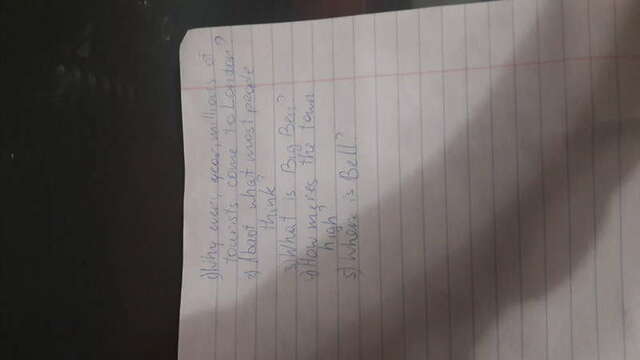 1) Why every year, millions of
tourists come to London?
2) About what most people
think?
3) What is Big Ben?
4) How meres the town
high?
5) Where is Bell?